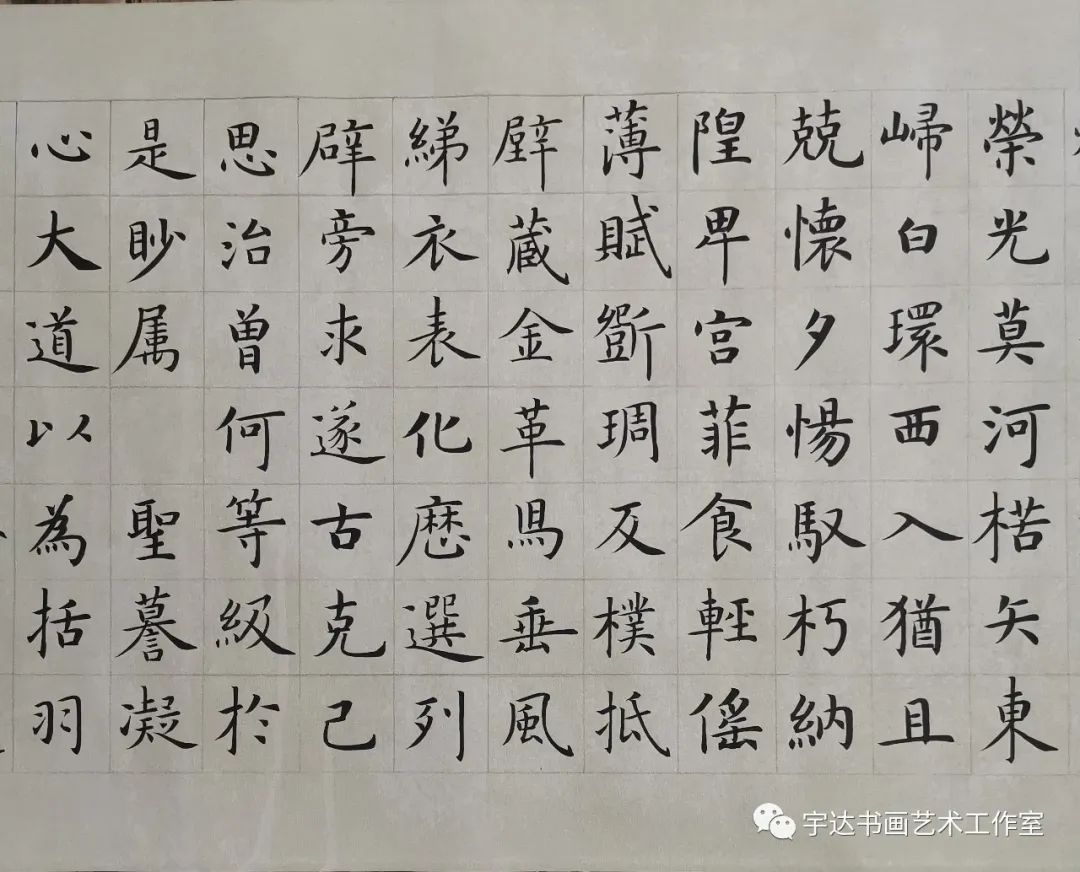 榮光莫河楛矢東
歸白環西入猶且
兢懷夕惕馭朽納
隍卑宮菲食輕傜
薄賦斲琱反樸抵
璧藏金革舄垂風
綈衣表化歷選列
辟旁求遂古克己
思治曾何等級於
是眇属 聖謩凝
心大道以為括羽
宇达书画艺术工作室